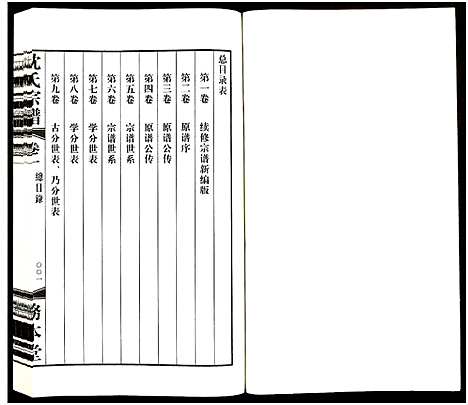 总目录表
第一卷 续修宗谱新编版
第二卷 原谱序
第三卷 原谱公传
第四卷 原谱公传
第五卷 宗谱世系
第六卷 宗谱世系
第七卷 学分世表
第八卷 学分世表
第九卷 古分世表、乃分世表
沈氏宗谱 卷一 總目錄 〇〇一 務本堂